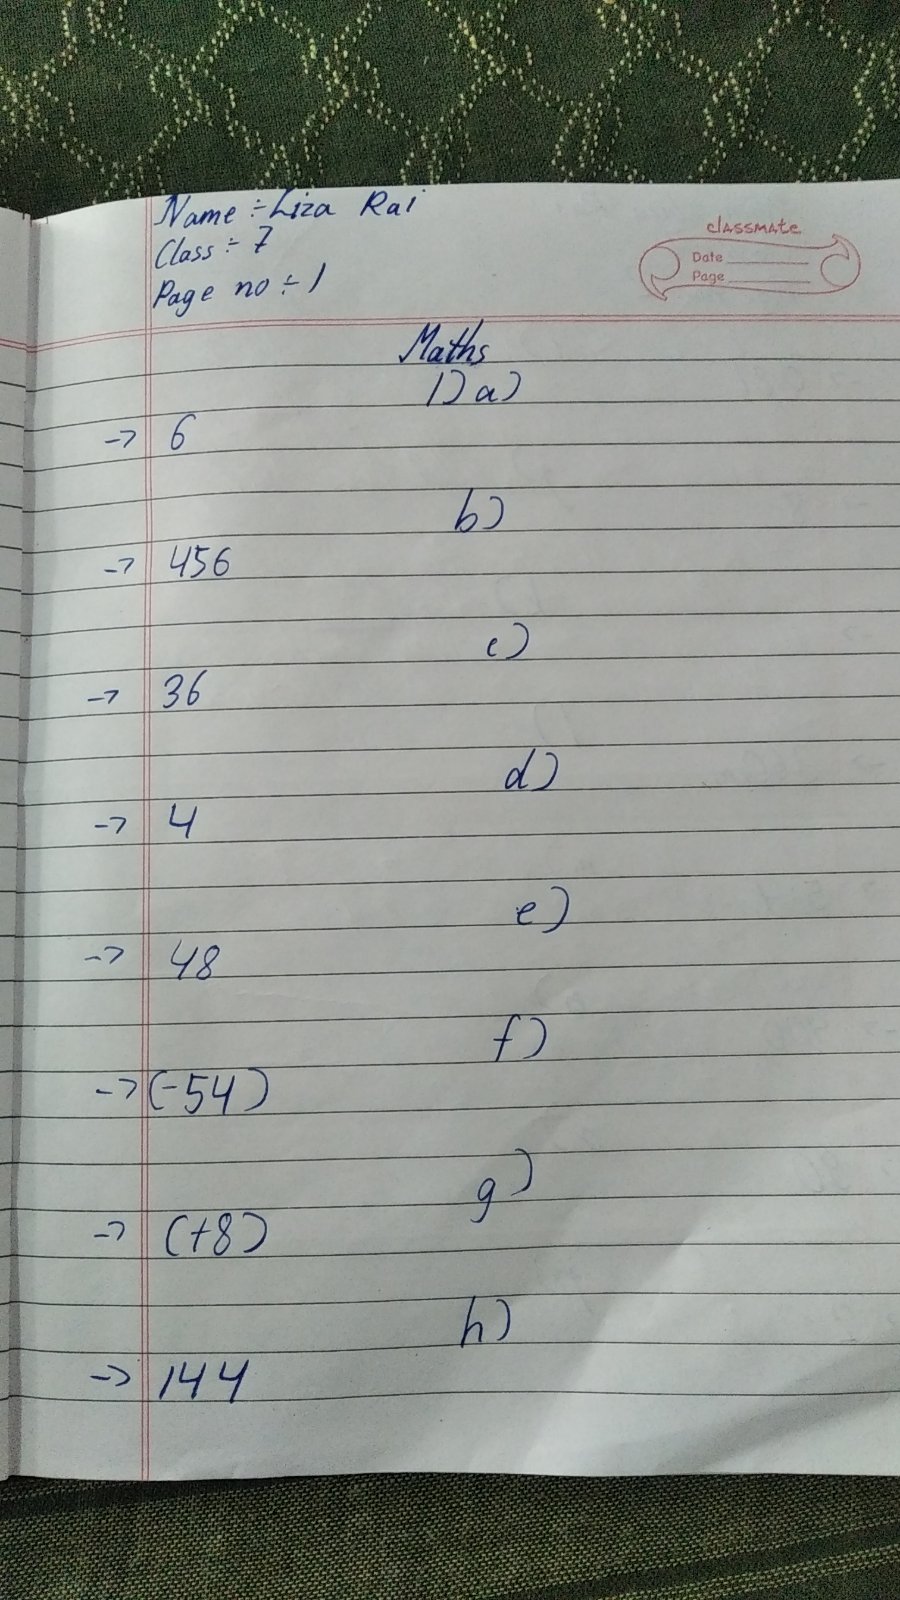 Name ÷ Liza Rai
Class ÷ 7
Page no ÷ 1
classmate
Date
Page
Maths
1) a)
→ 6
b)
→ 456
c)
→ 36
d)
→ 4
e)
→ 48
f)
→ (-54)
g)
→ (+8)
h)
→ 144